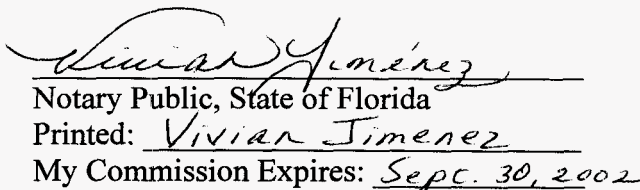 Vivian Jiménez
Notary Public, State of Florida
Printed: Vivian Jimenez
My Commission Expires: Sept. 30, 2002